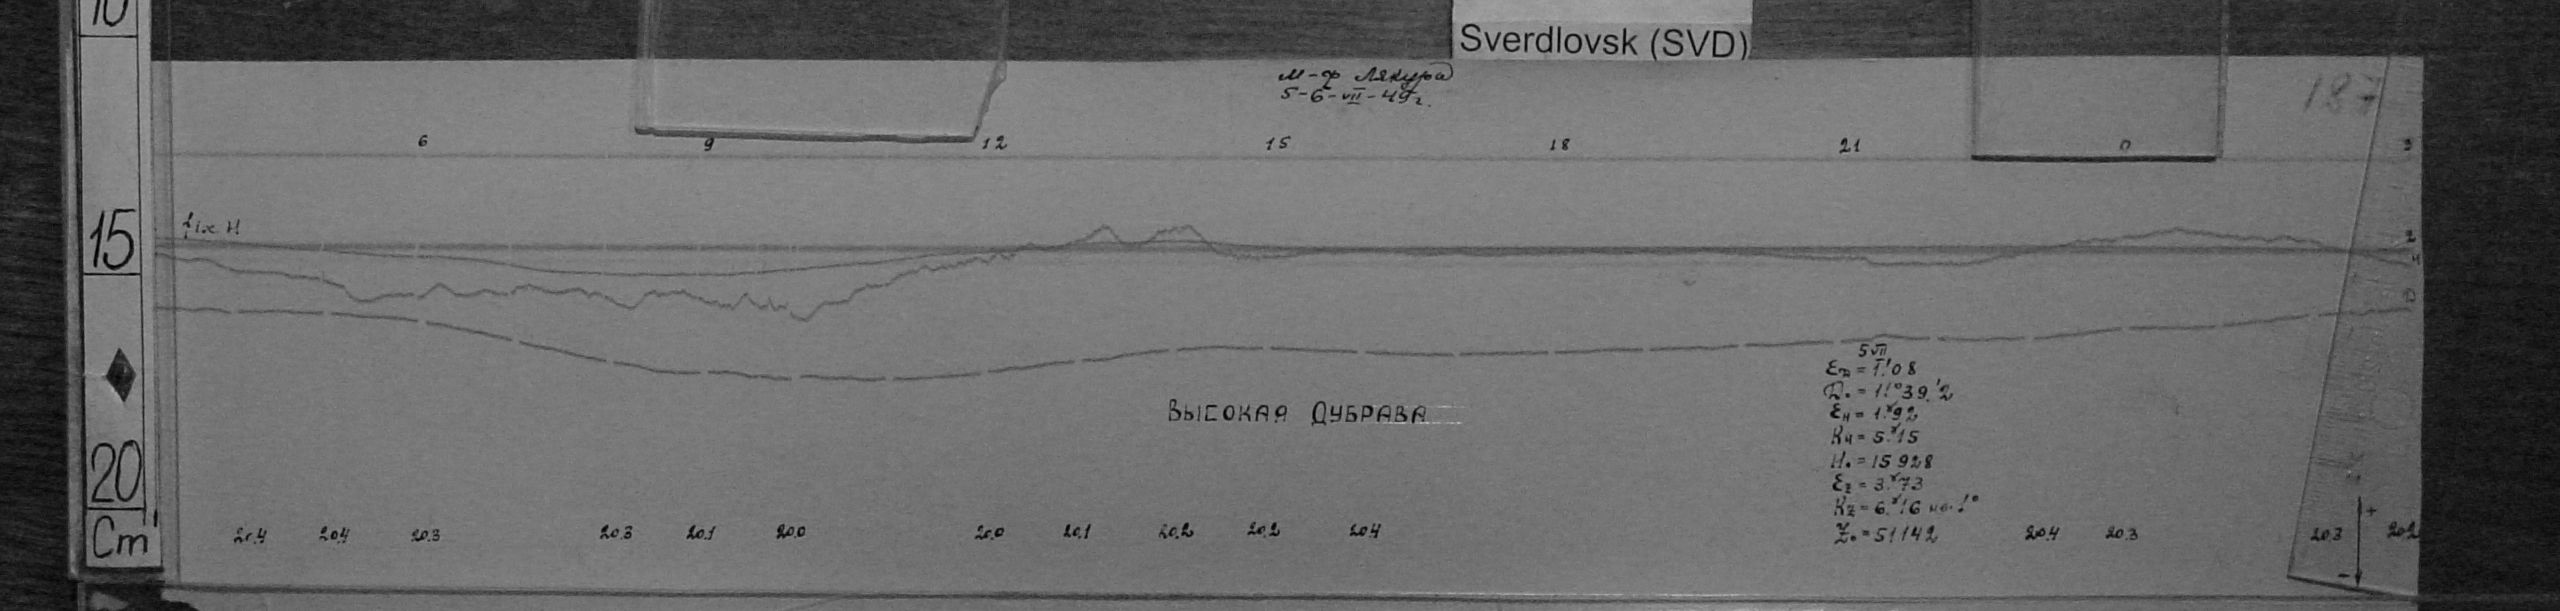 10
Sverdlovsk (SVD)
м-ф Лякура
5-6-VII-49г.
187
6 9 12 15 18 21 0 3
15
fix H
Z
H
D
5 VII
ε_D = 1.'08
D₀ = 11°39.'2
ВЫСОКАЯ ДУБРАВА
ε_H = 1.ˠ92
K_H = 5.ˠ15
H₀ = 15928
ε_Z = 3.ˠ73
K_Z = 6.ˠ16 на 1°
Z₀ = 51142
20
+
20.4 20.4 20.3 20.3 20.1 20.0 20.0 20.1 20.2 20.2 20.4 20.4 20.3 20.3 20.2
Cm
-